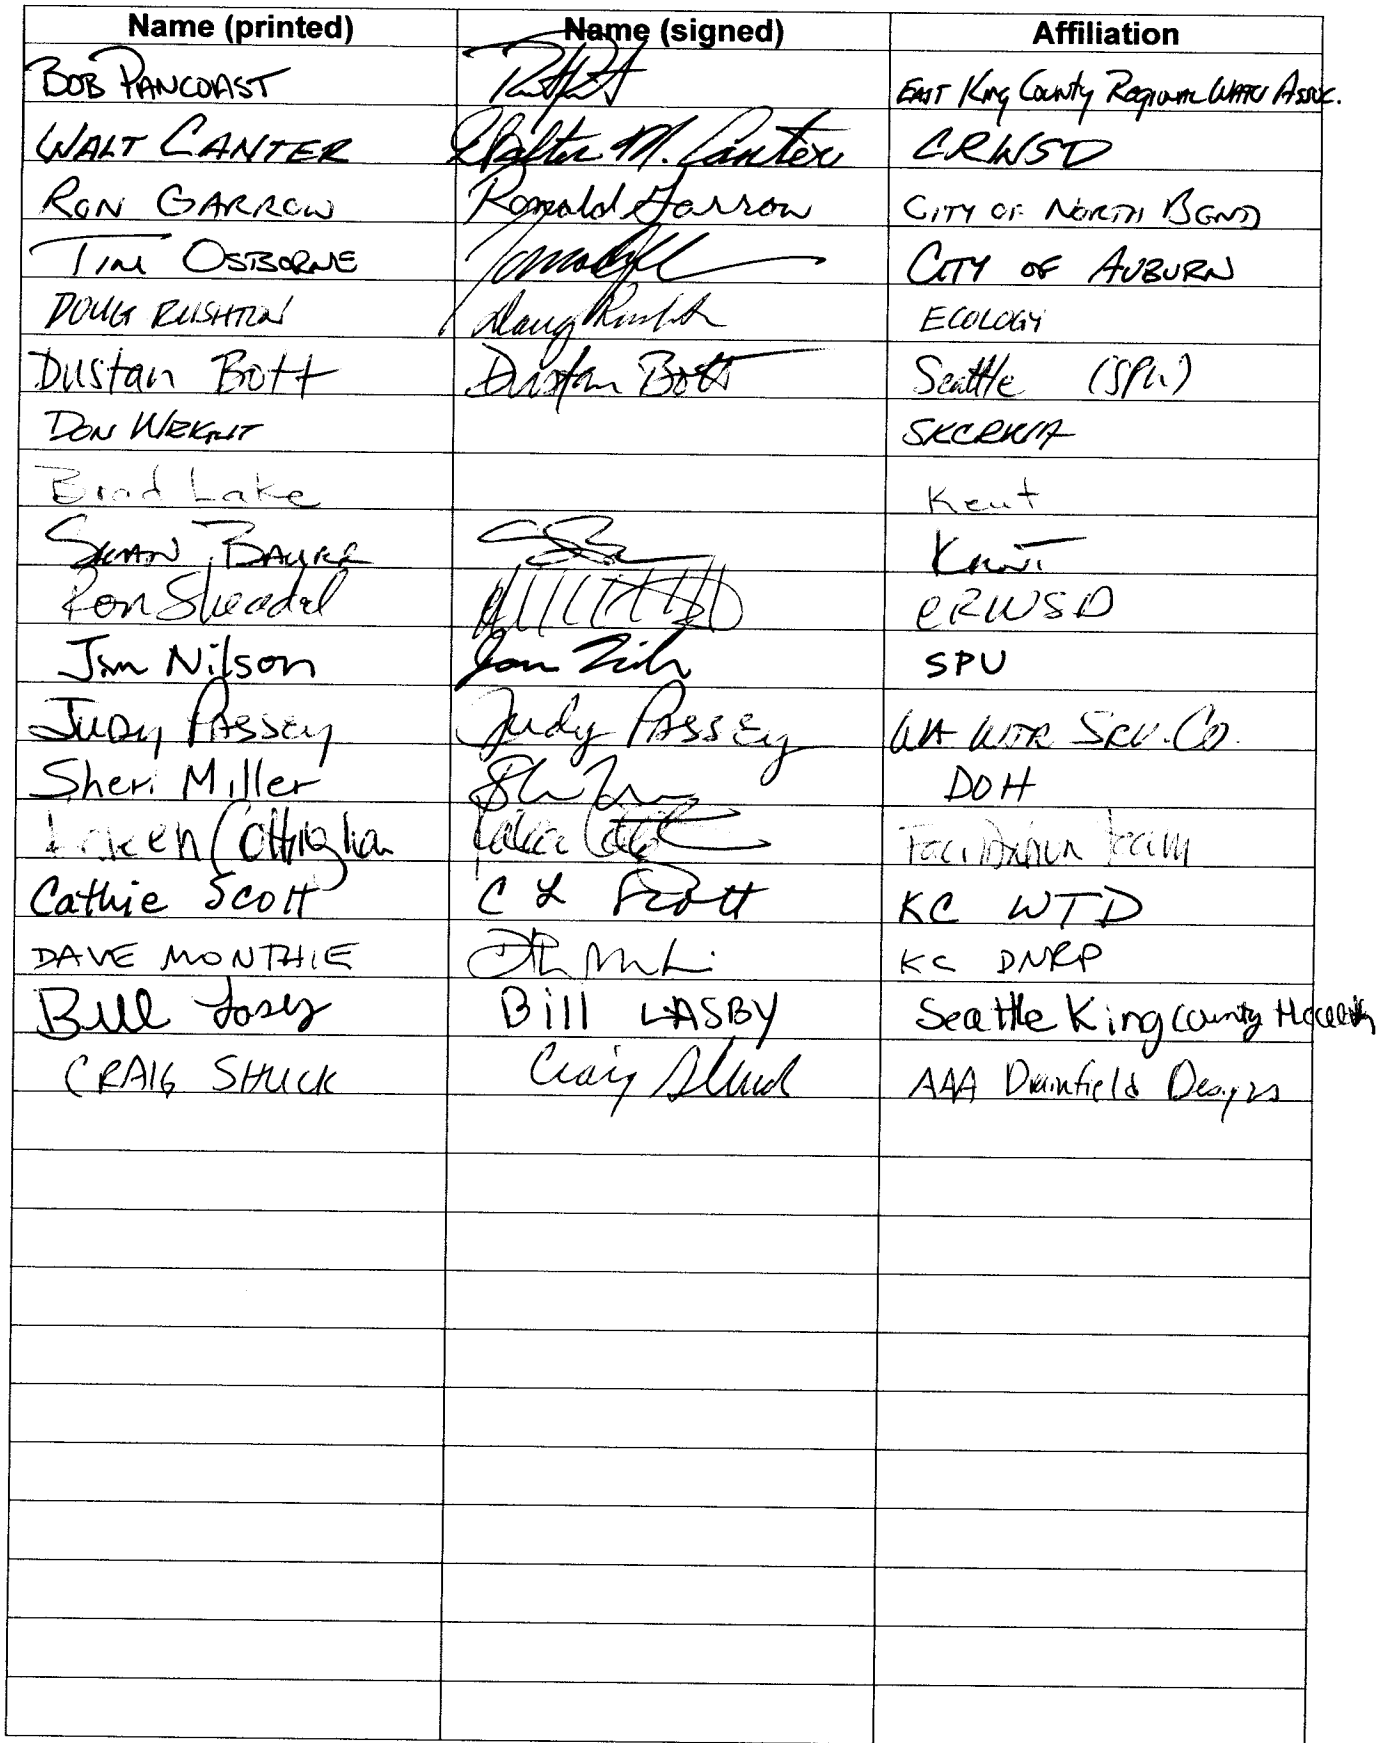 Name (printed) Name (signed) Affiliation
BOB PANCOAST EAST King County Regional Water Assoc.
WALT CANTER Walter M. Canter CRWSD
RON GARROW Ronald Garrow CITY OF NORTH BEND
TIM OSBORNE CITY OF AUBURN
DOUG RUSHTON Doug Rushton ECOLOGY
Dustan Bott Dustan Bott Seattle (SPU)
DON WRIGHT SKCRWA
Brad Lake Kent
SEAN BAUER Kent
Ron Sheadel CRWSD
Jim Nilson SPU
JUDY PASSEY Judy PASSEY WA WTR SRV. CO.
Sheri Miller DOH
Facilitation team
Cathie Scott C L Scott KC WTD
DAVE MONTHIE KC DNRP
Bill Lasby Bill LASBY Seattle King County Health
CRAIG SHUCK Craig Shuck AAA Drainfield Designs